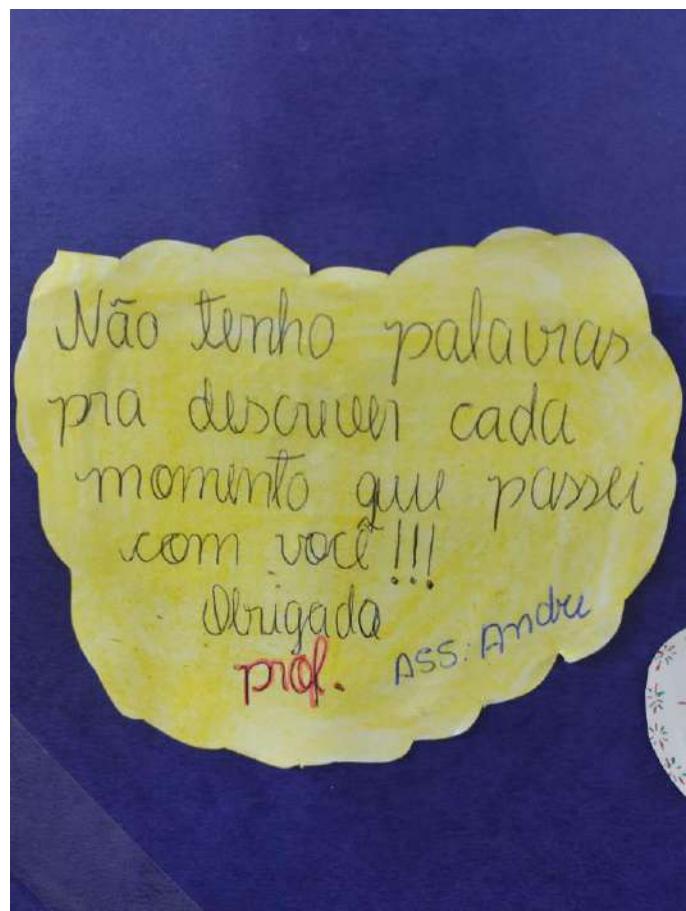 Não tenho palavras
pra descrever cada
momento que passei
com você!!!
Obrigada
prof. ASS: Andre